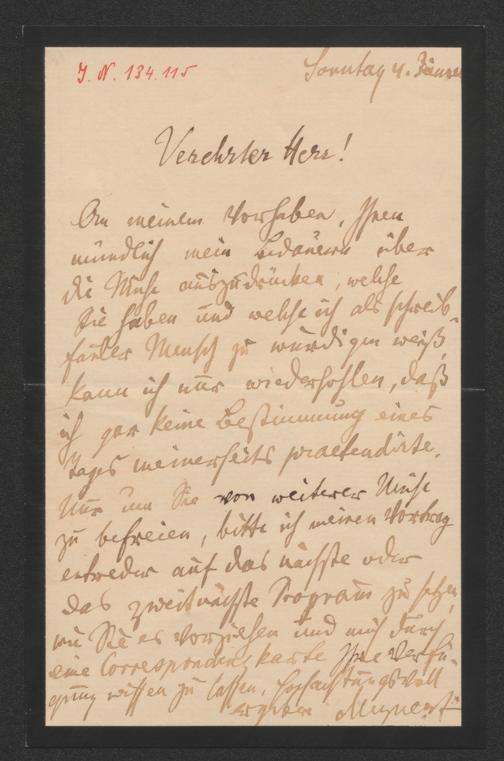 J. N. 134.115
Sonntag 4. Jänner
Verehrter Herr!
An meinem Vorhaben, Ihnen
mündlich mein Bedauern über
die Mühe auszudrücken, welche
Sie haben und welche ich als schreib-
fauler Mensch zu würdigen weiß,
kann ich nur wiederhohlen, daß
ich gar keine Bestimmung eines
Tages meinerseits praetendirte.
Nur um Sie von weiterer Mühe
zu befreien, bitte ich meinen Vortrag
entweder auf das nächste oder
das zweitnächste Program zu setzen,
wie Sie es vorziehen und mich durch
eine Correspondenzkarte Ihre Verfü-
gung wissen zu lassen. Hochachtungsvoll
ergeben Meynert